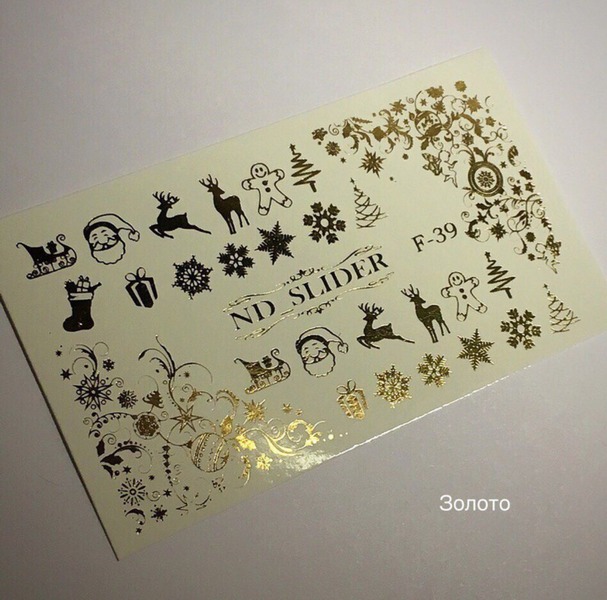 F-39
ND SLIDER
Золото